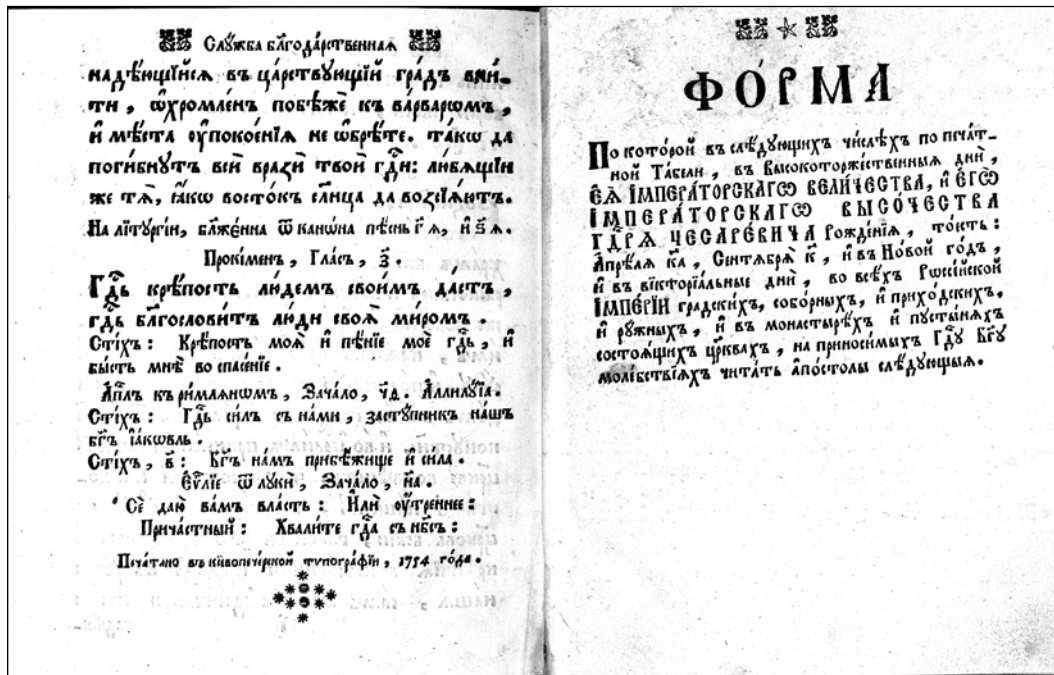 Слꙋ́жба блг҃ода́рственнаѧ
надѣ́ющїйсѧ въ ца́рствꙋющїй гра́дъ вни́-
ти , ѡ҆хромле́нъ побѣжѐ къ ва́рварѡмъ ,
и҆ мѣ́ста ᲂу҆поко́енїѧ не ѡ҆брѣ́те. та́кѡ да
поги́бнꙋтъ всѝ вразѝ твоѝ гдⷭ҇и: лю́бѧщїи
же тѧ̀, ꙗ҆́кѡ восто́къ сл҃нца да возсїѧ́ютъ.
На лїтꙋргі́и, бл҃же́нна ѿ кано́на пѣ́снь г҃ ѧ, и҆ ѕ҃ ѧ.
Прокі́менъ , Гла́съ , з҃.
Гдⷭ҇ь крѣ́пость лю́демъ свои́мъ да́стъ ,
гдⷭ҇ь бл҃гослови́тъ лю́ди своѧ̀ ми́ромъ .
Сті́хъ : Крѣ́пость моѧ̀ и҆ пѣ́нїе моѐ гдⷭ҇ь , и҆
бы́сть мнѣ̀ во спасе́нїе .
А҆пⷭ҇лъ къ ри́млѧнѡмъ , Зача́ло , ч҃д . А҆ллилꙋ́їа.
Сті́хъ : Гдⷭ҇ь си́лъ съ на́ми , застꙋ́пникъ на́шъ
бг҃ъ і҆а́кѡвль .
Сті́хъ , в҃ : Бг҃ъ на́мъ прибѣ́жище и҆ си́ла .
Е҆ѵⷢ҇лїе ѿ лꙋкѝ , Зача́ло , н҃а .
Сѐ даю̀ ва́мъ вла́сть : И҆лѝ ᲂу҆́треннее :
Прича́стный : Хвали́те гдⷭ҇а съ нб҃съ :
Печа́тано въ кїѵопече́рской тѵпогра́фїи , 1754 го́да .
ФО́РМА
По кото́рой въ слѣ́дꙋющихъ чи́слѣхъ по печа́т-
ной Та́бели , въ Высокоторже́ственныѧ днѝ ,
Е҆Ѧ̀ І҆МПЕРА́ТОРСКАГѠ ВЕЛИ́ЧЕСТВА, и҆ Е҆ГѠ̀
І҆МПЕРА́ТОРСКАГѠ ВЫСО́ЧЕСТВА
ГДⷭ҇РѦ ЦЕСАРЕ́ВИЧА Рожде́нїѧ , то́есть :
А҆прє́лѧ к҃а , Сентѧбрѧ̀ к҃ , и҆ въ Но́вой го́дъ ,
и҆ въ вїкторїа́льные днѝ , во всѣ́хъ Рѡссі́йской
І҆МПЕ́РЇИ гра́дскихъ, собо́рныхъ, и҆ прихо́дскихъ,
и҆ рꙋ́жныхъ , и҆ въ монастырѣ́хъ и҆ пꙋсты́нѧхъ
состоѧ́щихъ цр҃квахъ , на приноси́мыхъ Гдⷭ҇ꙋ Бг҃ꙋ
моле́бствїѧхъ чита́ть а҆по́столы слѣ́дꙋющыѧ.